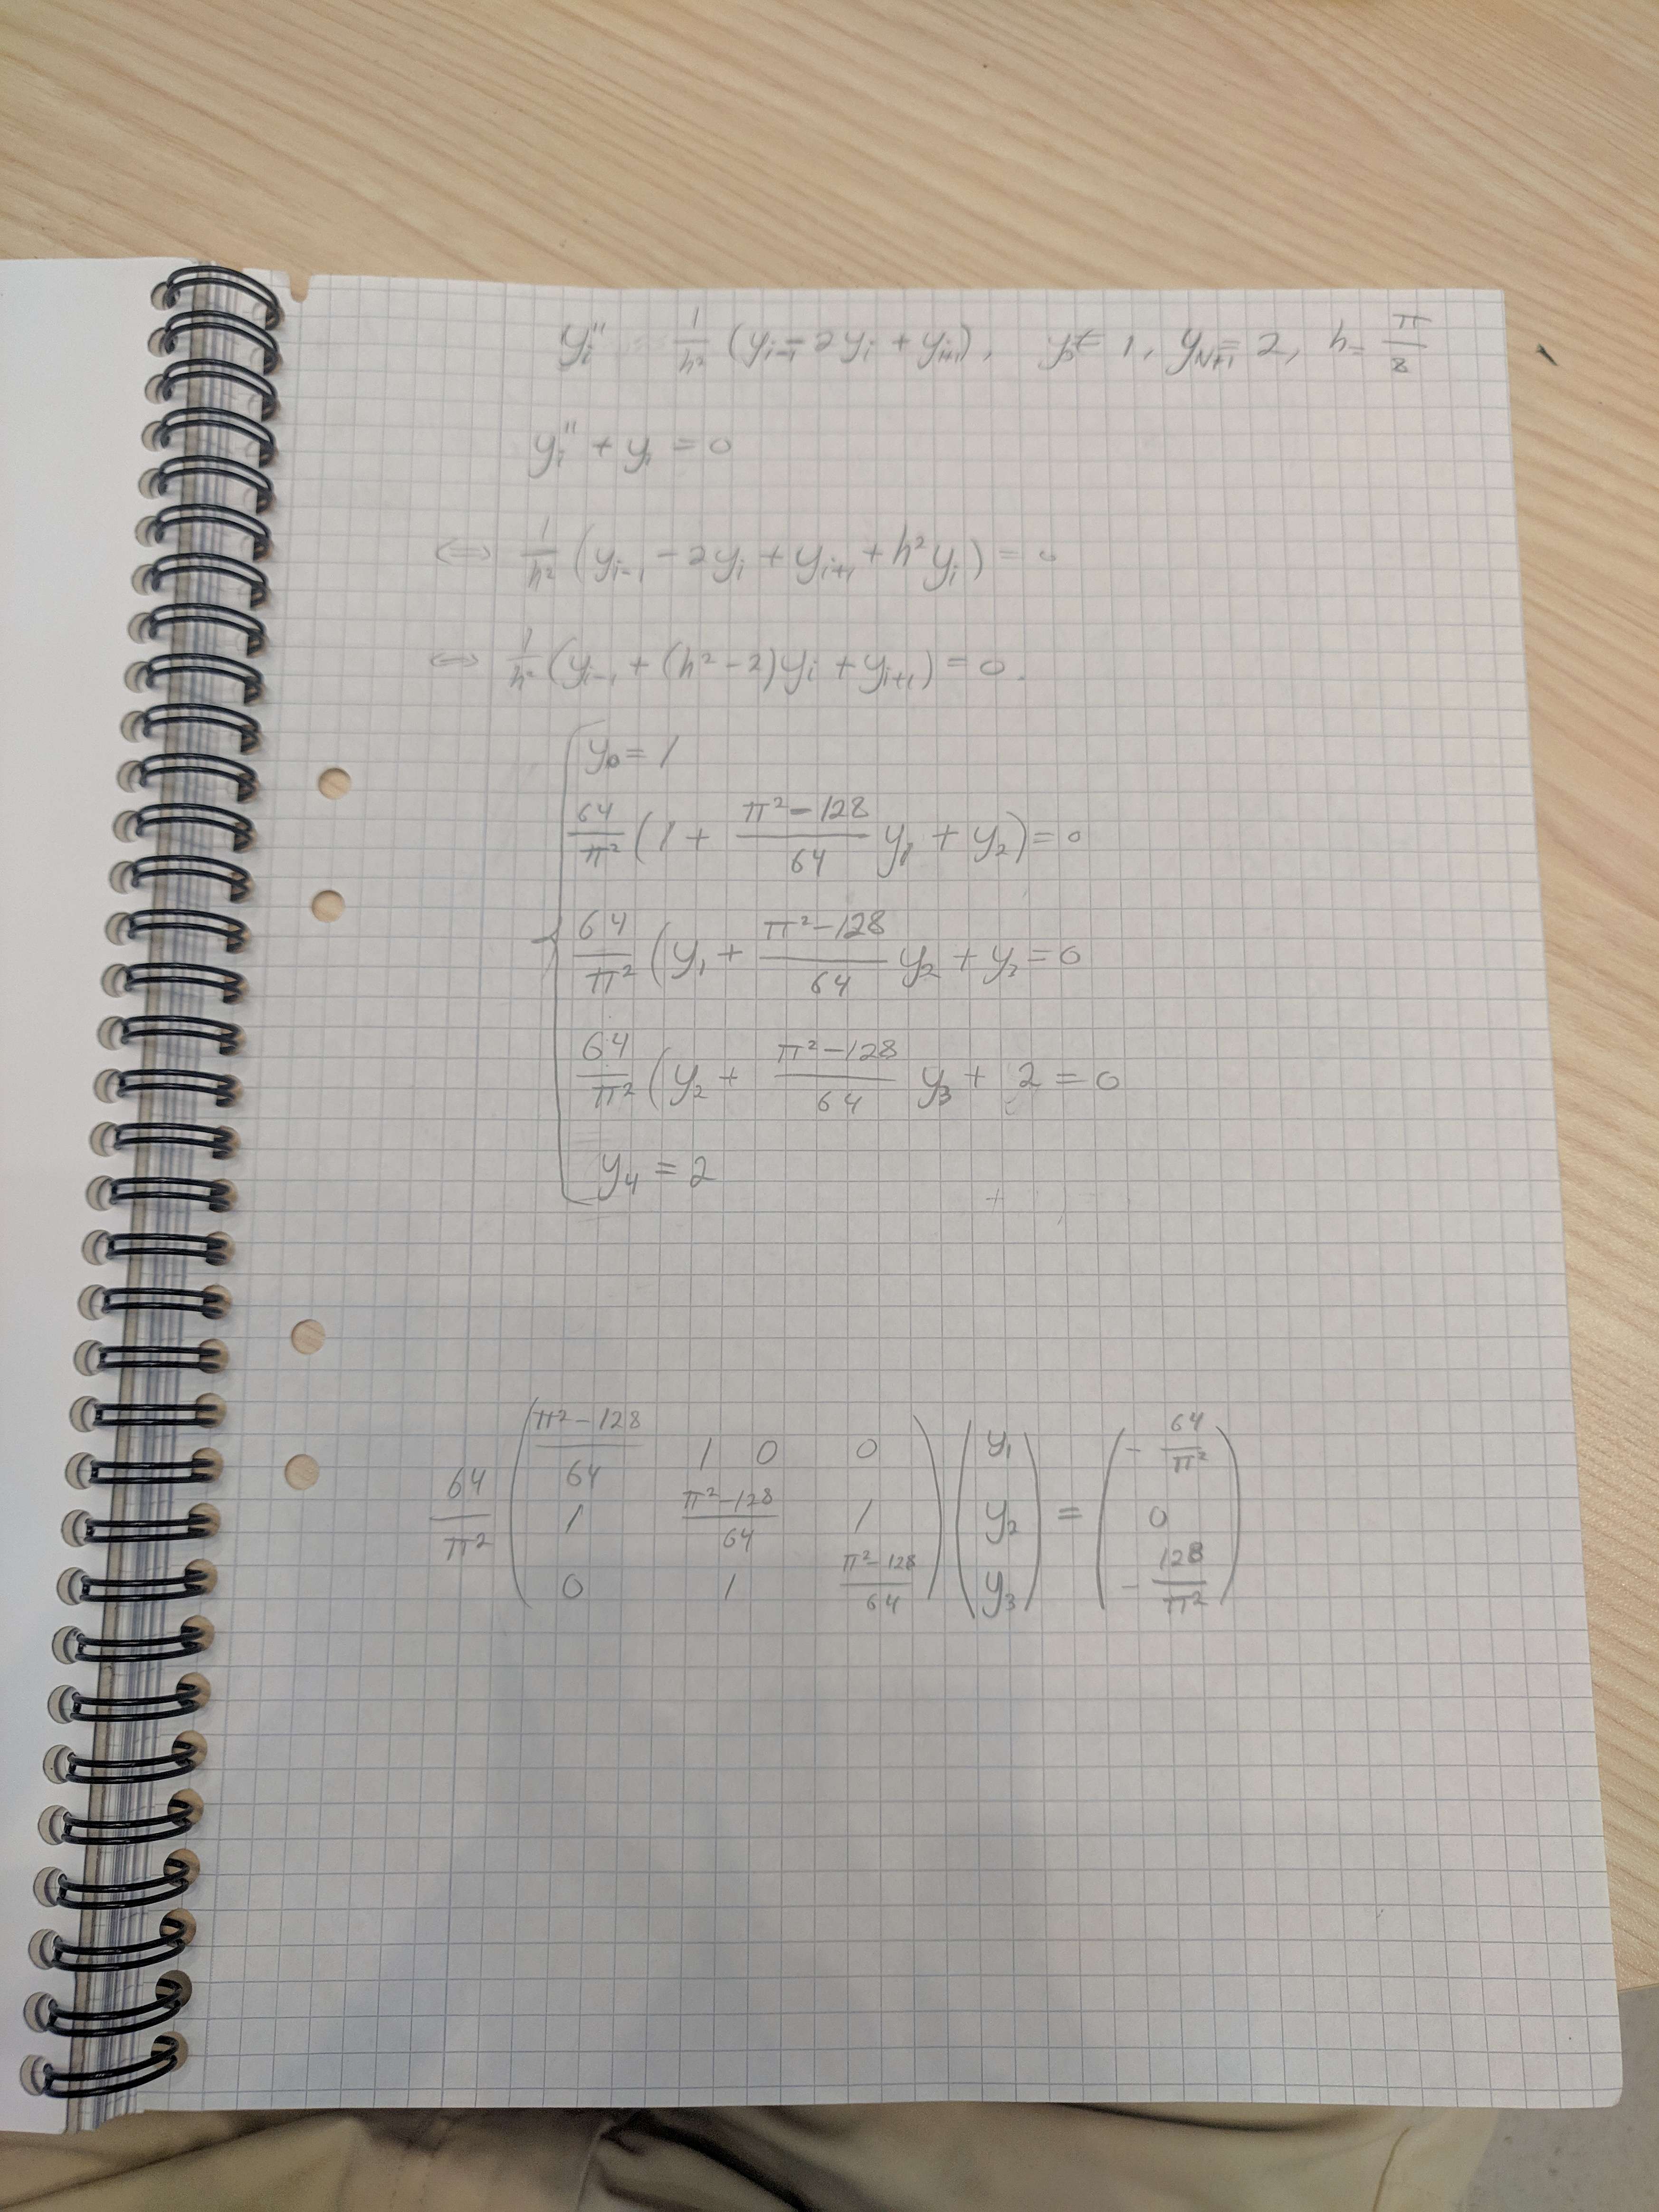 yᵢ'' = 1/h² (yᵢ₋₁ - 2yᵢ + yᵢ₊₁), y₀ = 1, y_N+1 = 2, h = π/8
yᵢ'' + yᵢ = 0
⟺ 1/h² (yᵢ₋₁ - 2yᵢ + yᵢ₊₁ + h²yᵢ) = 0
⟺ 1/h² (yᵢ₋₁ + (h² - 2)yᵢ + yᵢ₊₁) = 0.
y₀ = 1
64/π² (1 + (π² - 128)/64 y₁ + y₂) = 0
64/π² (y₁ + (π² - 128)/64 y₂ + y₃ = 0
64/π² (y₂ + (π² - 128)/64 y₃ + 2 = 0
y₄ = 2
64/π² ( (π² - 128)/64 1 0 0 ; 1 (π² - 128)/64 1 ; 0 1 (π² - 128)/64 ) ( y₁ ; y₂ ; y₃ ) = ( - 64/π² ; 0 ; - 128/π² )